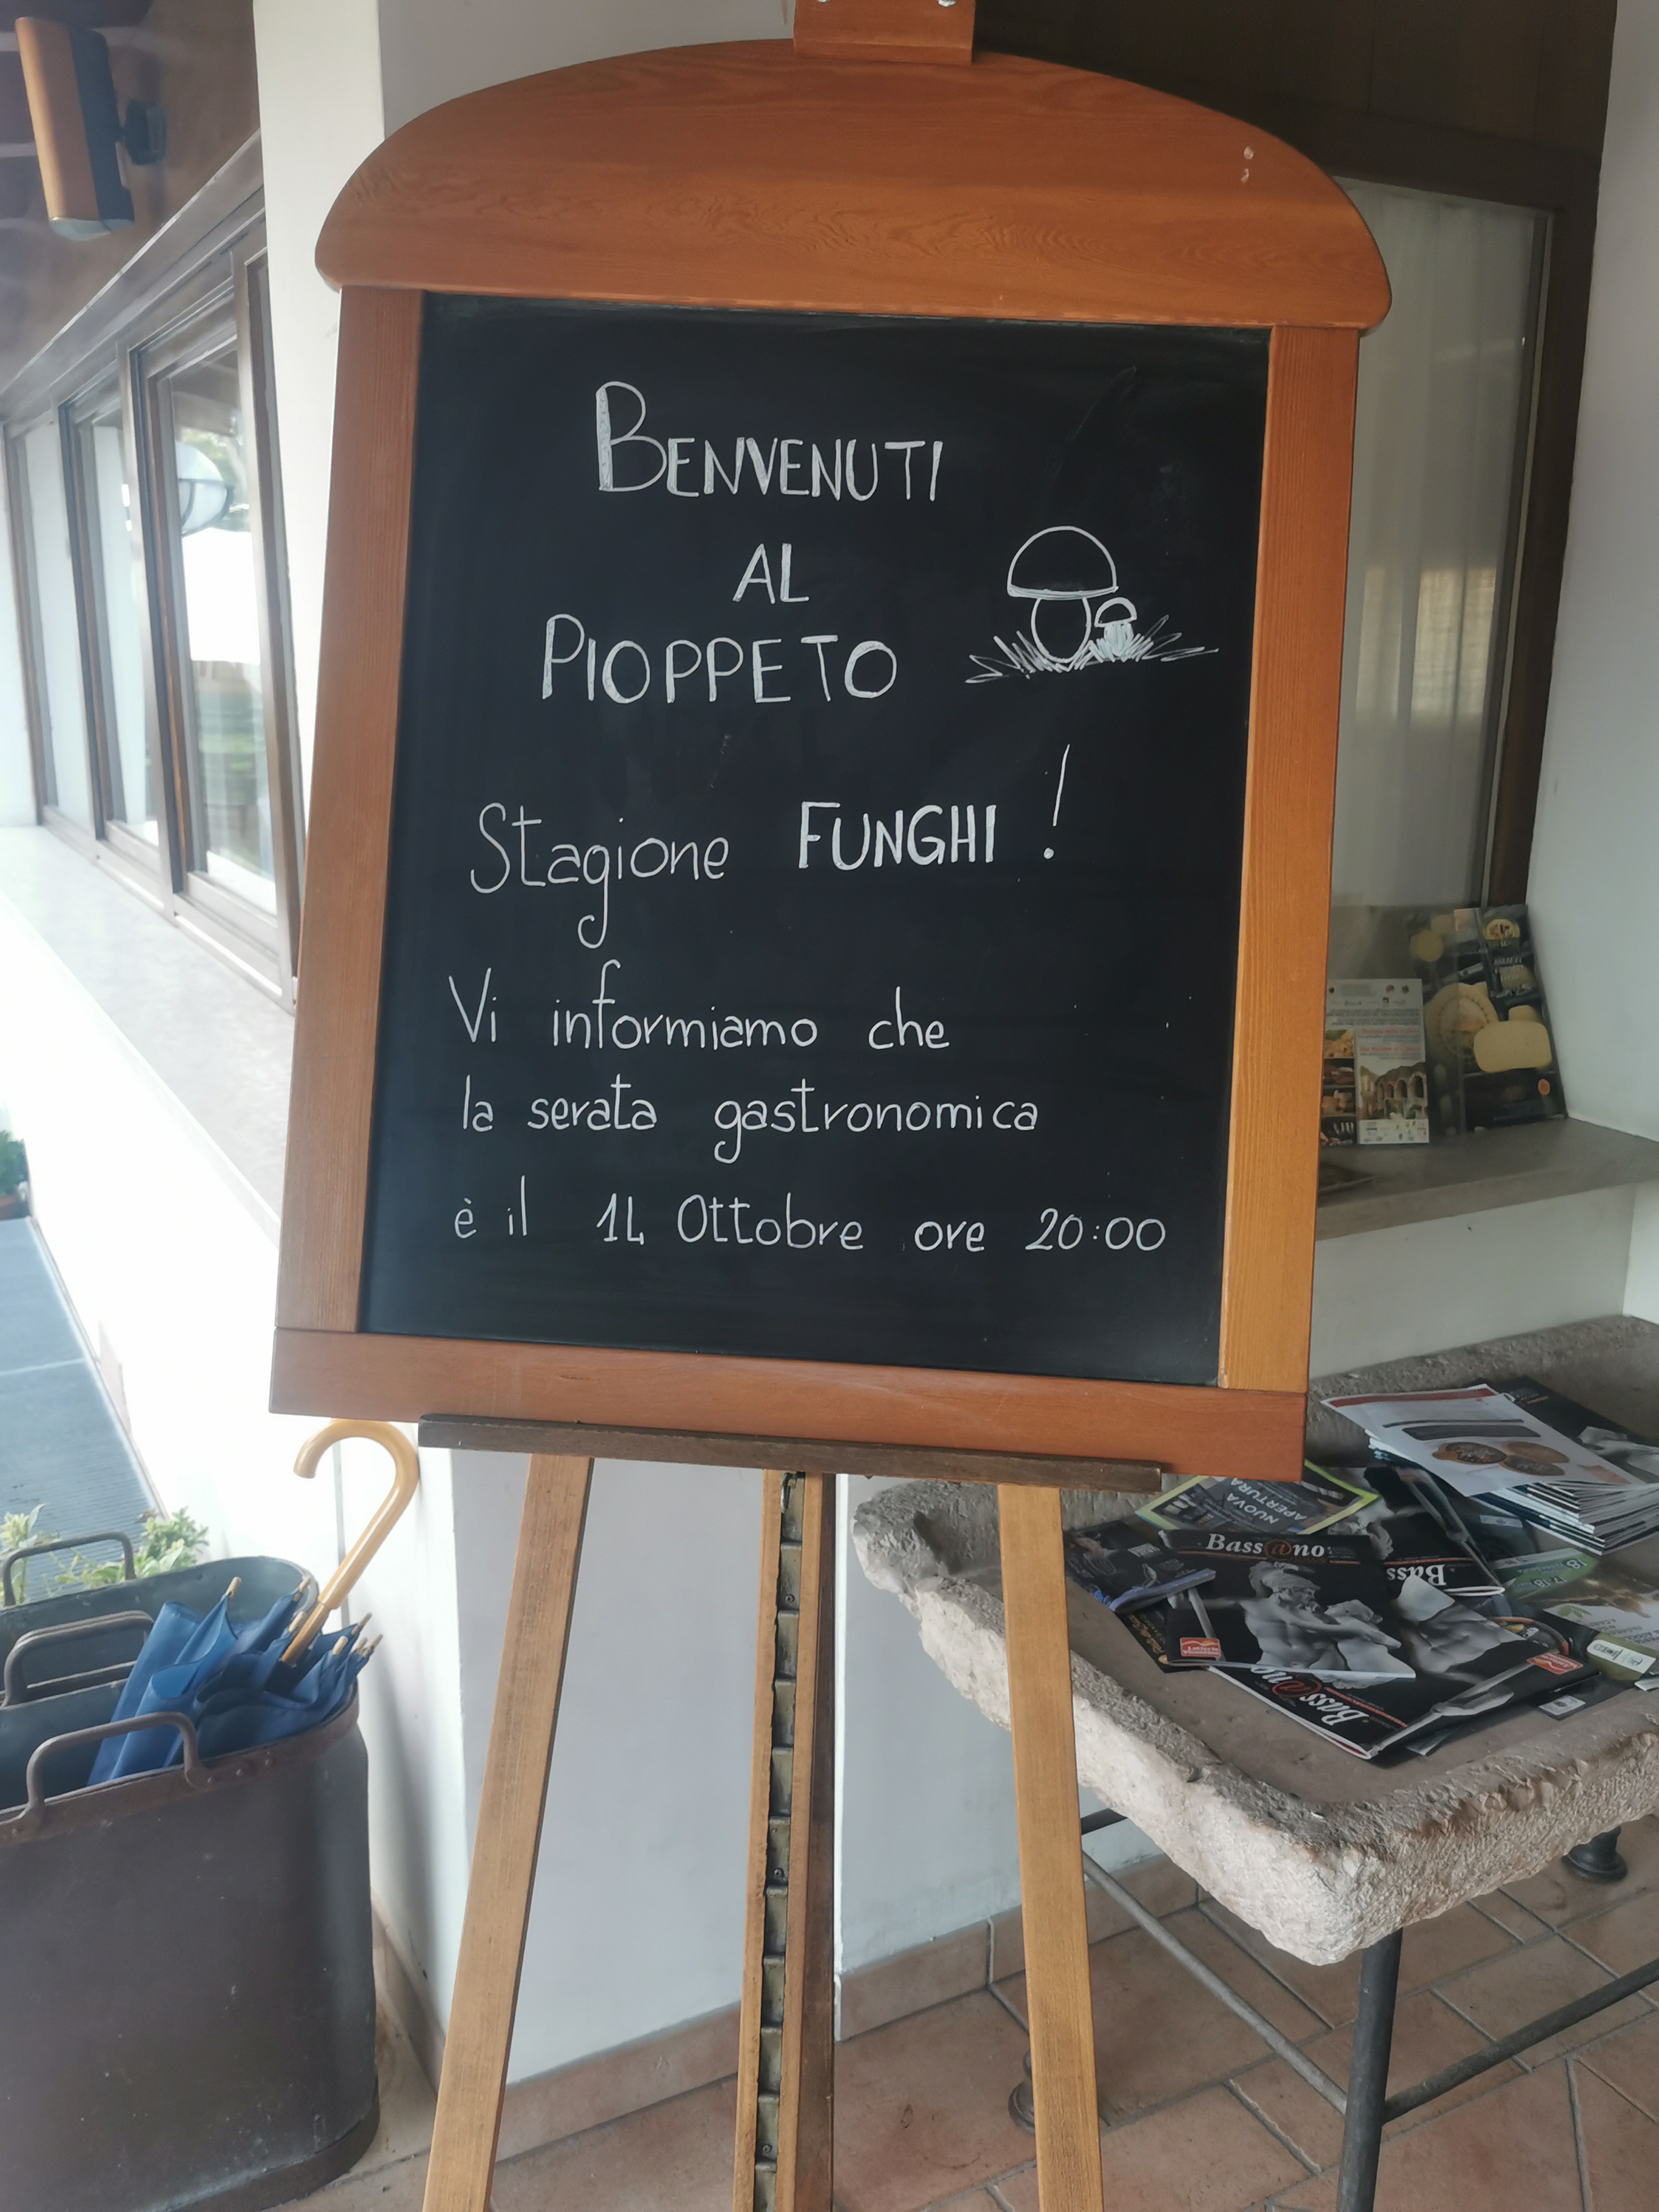 BENVENUTI
AL
PIOPPETO
Stagione FUNGHI!
Vi informiamo che
la serata gastronomica
è il 14 Ottobre ore 20:00
NUOVA
APERTURA
Bass@no
Bass
Bass@no